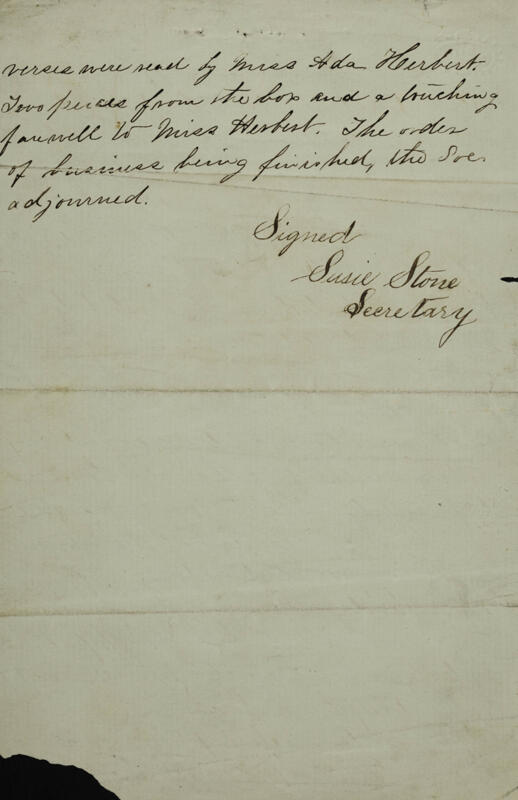 verses were read by Miss Ada Herbert.
Two pieces from the box and a touching
farewell to Miss Herbert. The order
of business being finished, the Soc.
adjourned.
Signed
Susie Stone
Secretary